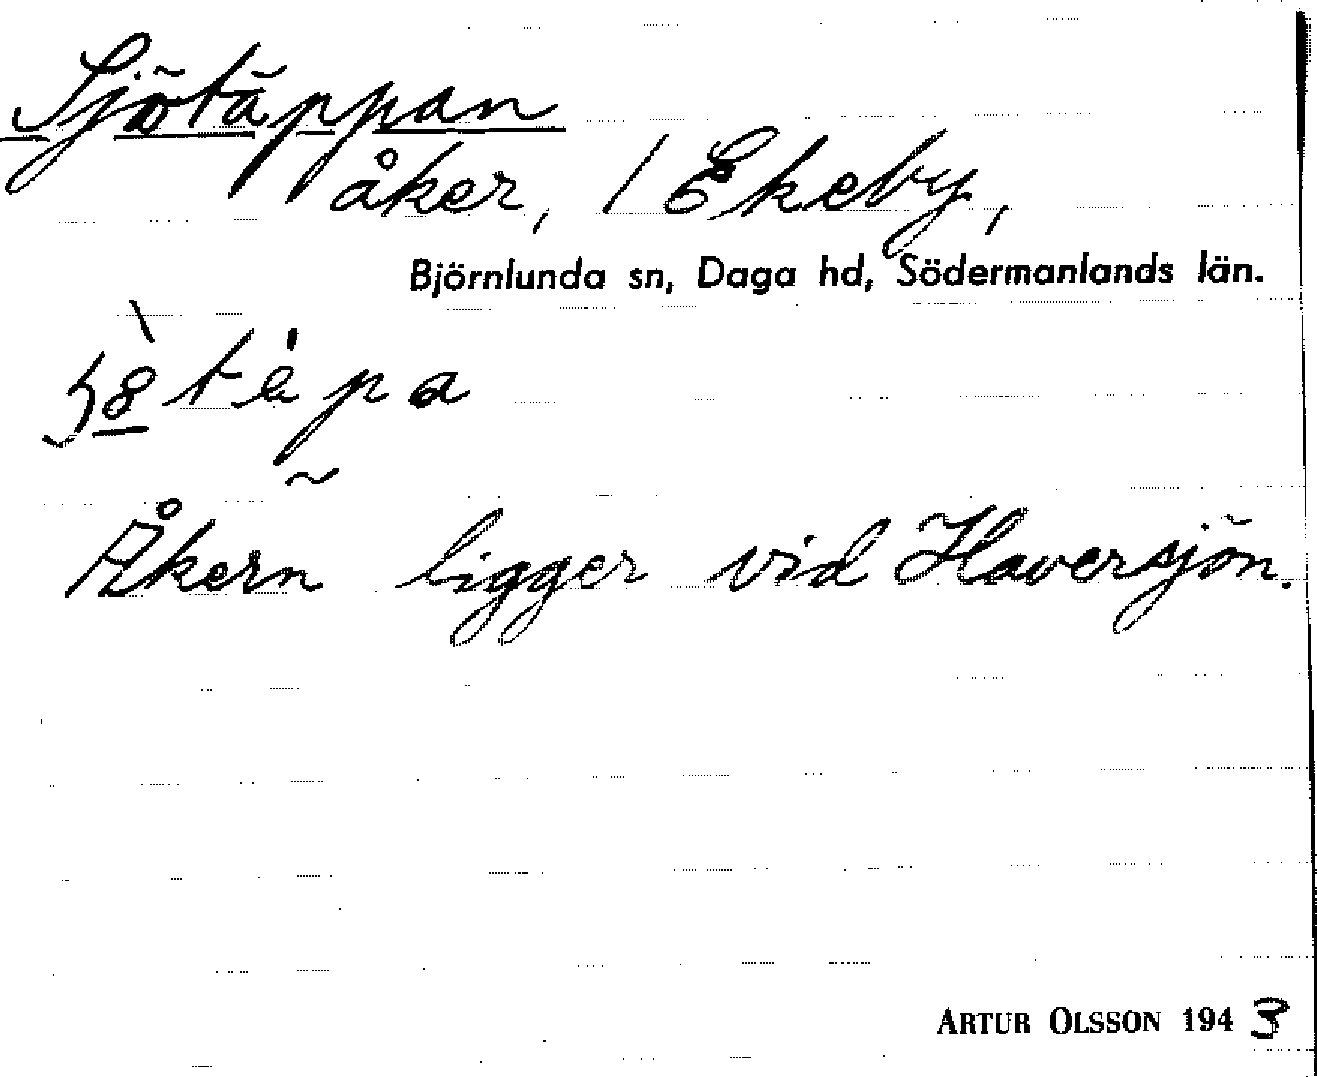 Sjötäppan
åker, / Ekeby,
Björnlunda sn, Daga hd, Södermanlands län.
Åkern ligger vid Haversjön.
ARTUR OLSSON 1943